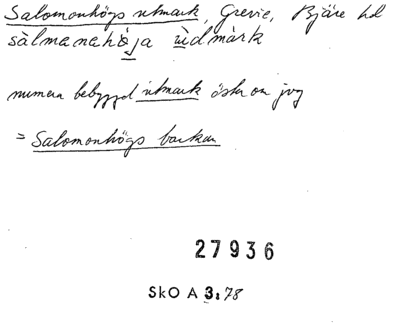 Salomonhögs utmark, Grevie, Bjäre hd
sàlmanahö̀ja ùdmàrk
numera bebyggd utmark öster om jvg
= Salomonhögs backar
27936
SkO A 3:78